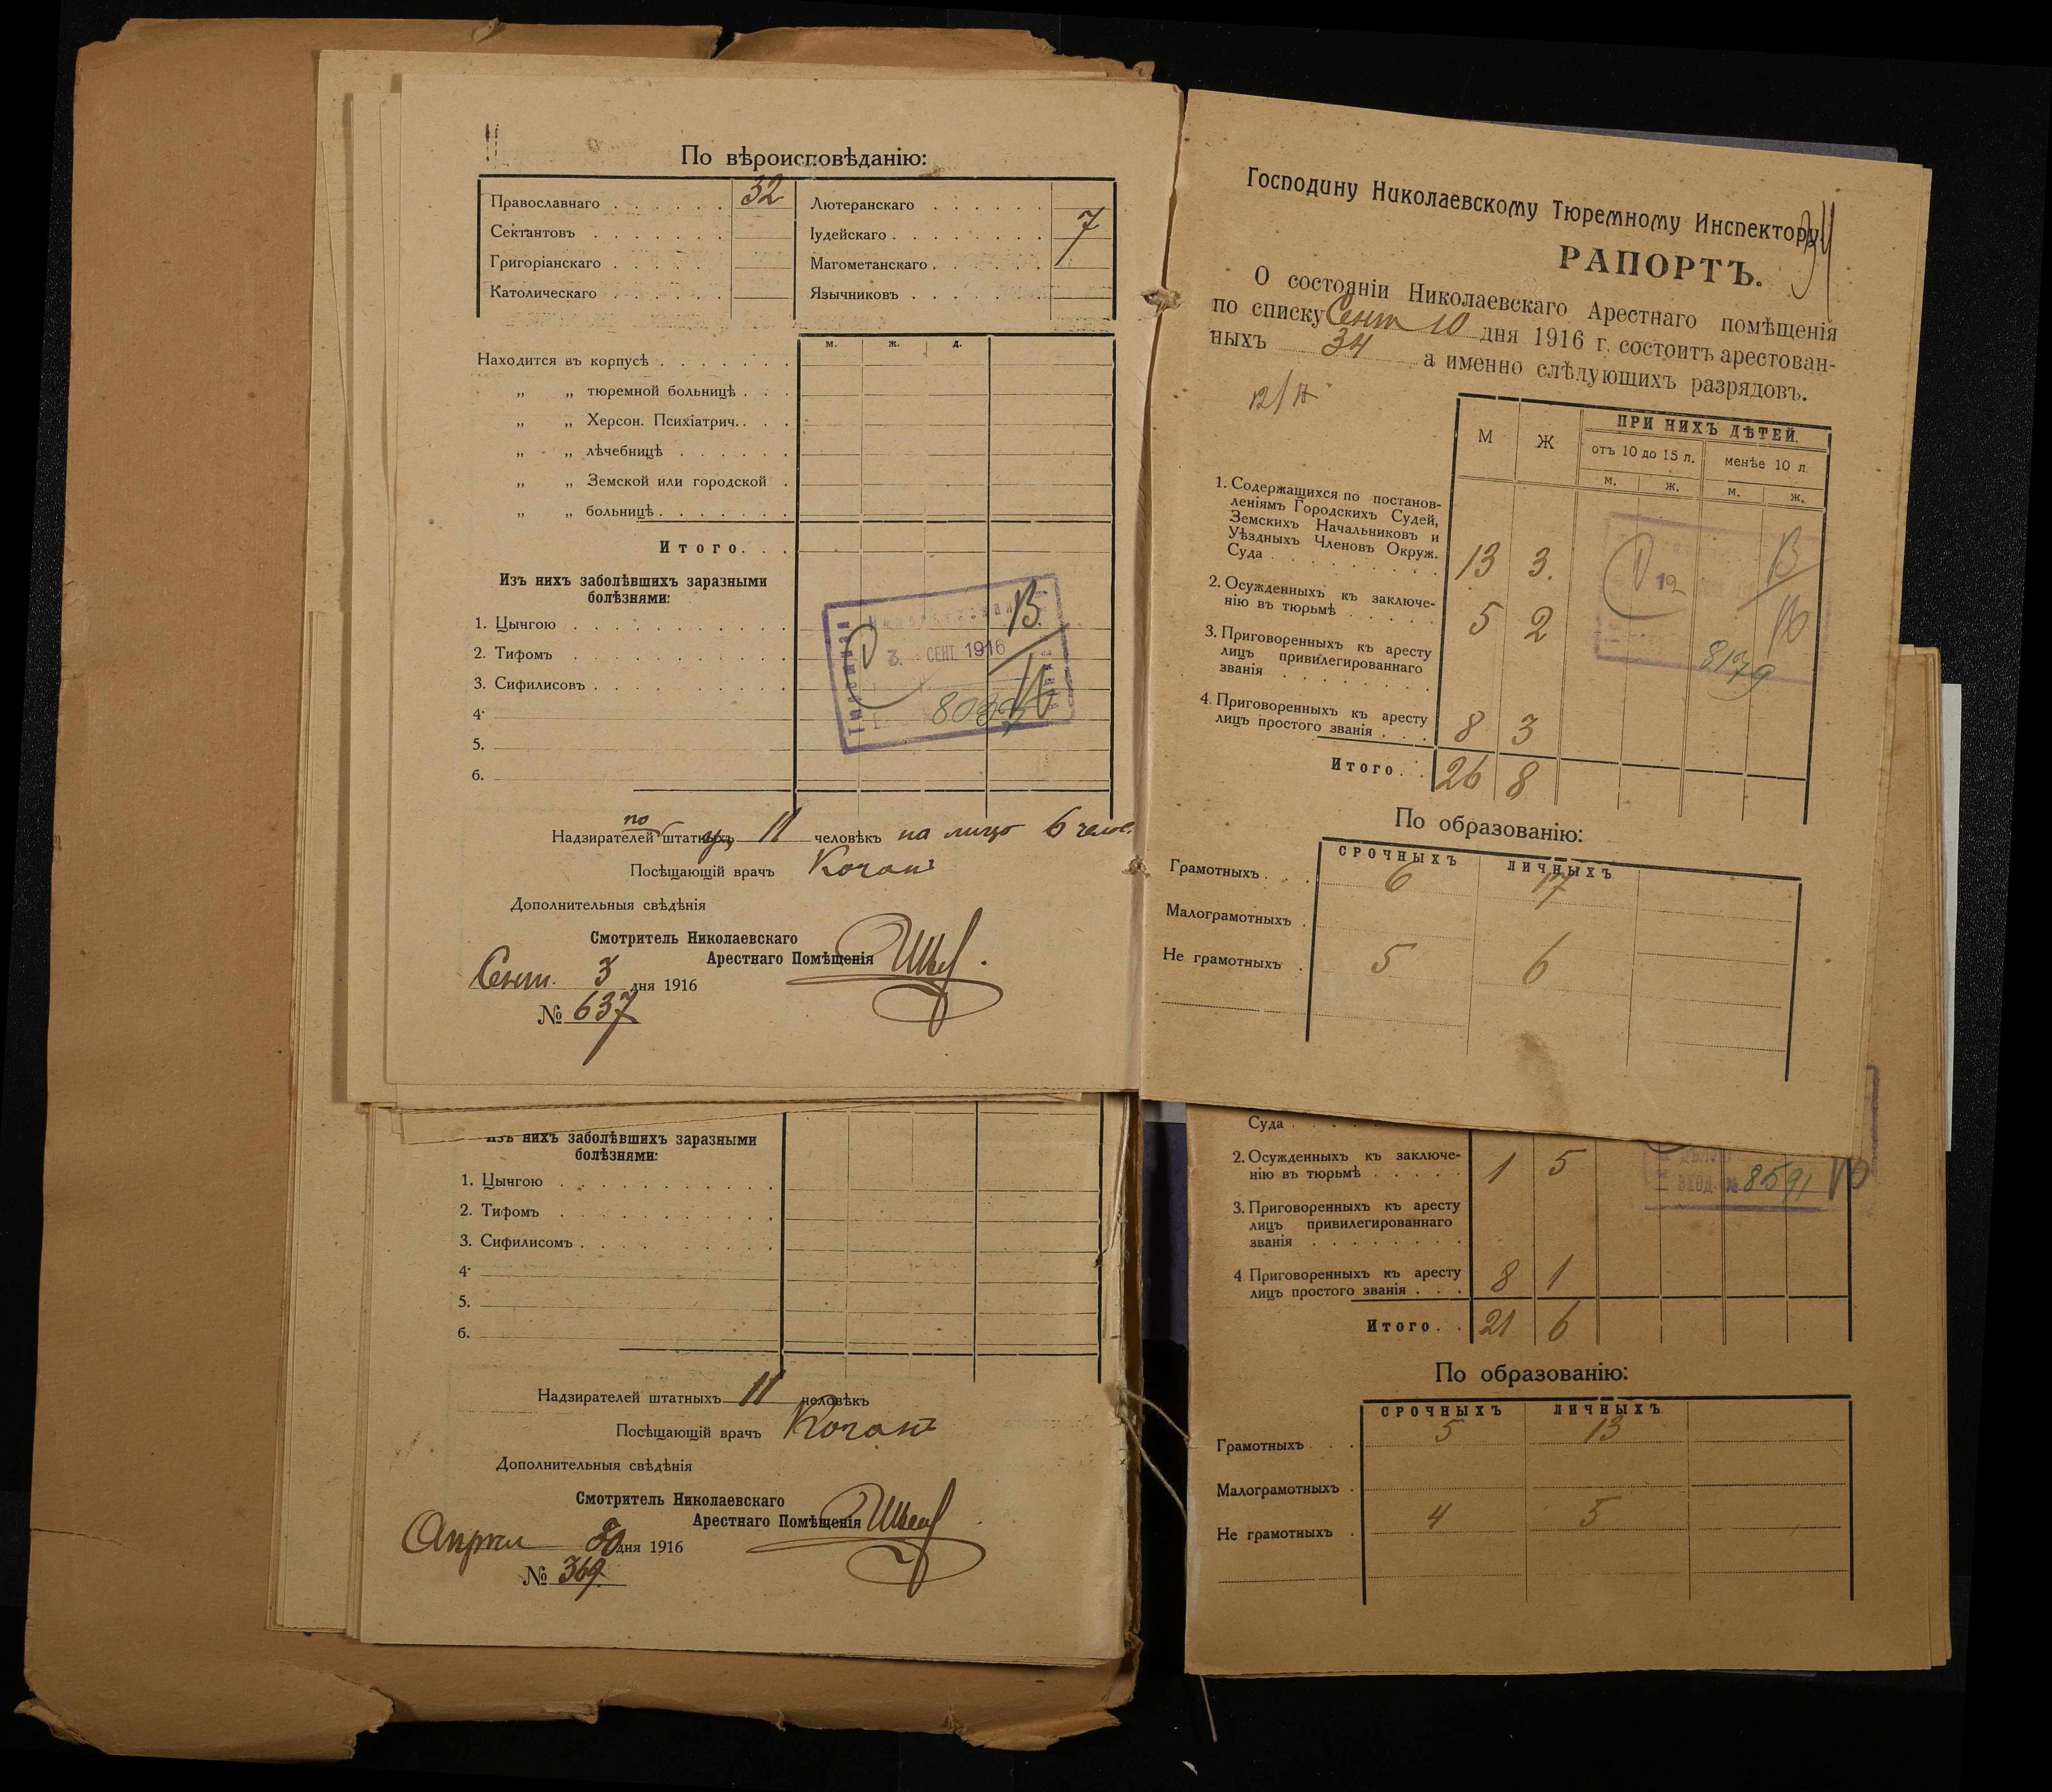 По вѣроисповѣданію:
Православнаго 32 Лютеранскаго
Сектантовъ Іудейскаго 7
Григоріанскаго Магометанскаго
Католическаго Язычниковъ
м. ж. д.
Находится въ корпусѣ
„ „ тюремной больницѣ
„ „ Херсон. Психіатрич.
„ „ лѣчебницѣ
„ „ Земской или городской
„ „ больницѣ
Итого
Изъ нихъ заболѣвшихъ заразными
болѣзнями:
1. Цынгою
2. Тифомъ
3. Сифилисовъ
4.
5.
6.
3. СЕНТ. 1916
Надзирателей по штатныхъ 11 человѣкъ на лицо 6 чел.
Посѣщающій врачъ Коганъ
Дополнительныя свѣдѣнія
Смотритель Николаевскаго
Арестнаго Помѣщенія
Сент. 3 дня 1916
№ 637
Изъ нихъ заболѣвшихъ заразными
болѣзнями:
1. Цынгою
2. Тифомъ
3. Сифилисомъ
4.
5.
6.
Надзирателей штатныхъ 11 человѣкъ
Посѣщающій врачъ Коганъ
Дополнительныя свѣдѣнія
Смотритель Николаевскаго
Арестнаго Помѣщенія
Апрел 30 дня 1916
№ 369.
Господину Николаевскому Тюремному Инспектору.
РАПОРТЪ.
О состояніи Николаевскаго Арестнаго помѣщенія
по списку Сент 10 дня 1916 г. состоитъ арестован-
ныхъ 34 а именно слѣдующихъ разрядовъ.
М Ж ПРИ НИХЪ ДѢТЕЙ.
отъ 10 до 15 л. менѣе 10 л.
м. ж. м. ж.
1. Содержащихся по постанов-
леніямъ Городскихъ Судей,
Земскихъ Начальниковъ и
Уѣздныхъ Членовъ Окруж.
Суда 13 3.
2. Осужденныхъ къ заключе-
нію въ тюрьмѣ 5 2
3. Приговоренныхъ къ аресту
лицъ привилегированнаго
званія
8179
4. Приговоренныхъ къ аресту
лицъ простого званія 8 3
Итого 26 8
По образованію:
СРОЧНЫХЪ ЛИЧНЫХЪ
Грамотныхъ 6 17
Малограмотныхъ
Не грамотныхъ 5 6
Суда
2. Осужденныхъ къ заключе-
нію въ тюрьмѣ 1 5
ВХОД. № 8591
3. Приговоренныхъ къ аресту
лицъ привилегированнаго
званія
4. Приговоренныхъ къ аресту
лицъ простого званія 8 1
Итого 21 6
По образованію:
СРОЧНЫХЪ ЛИЧНЫХЪ
Грамотныхъ 5 13
Малограмотныхъ
Не грамотныхъ 4 5